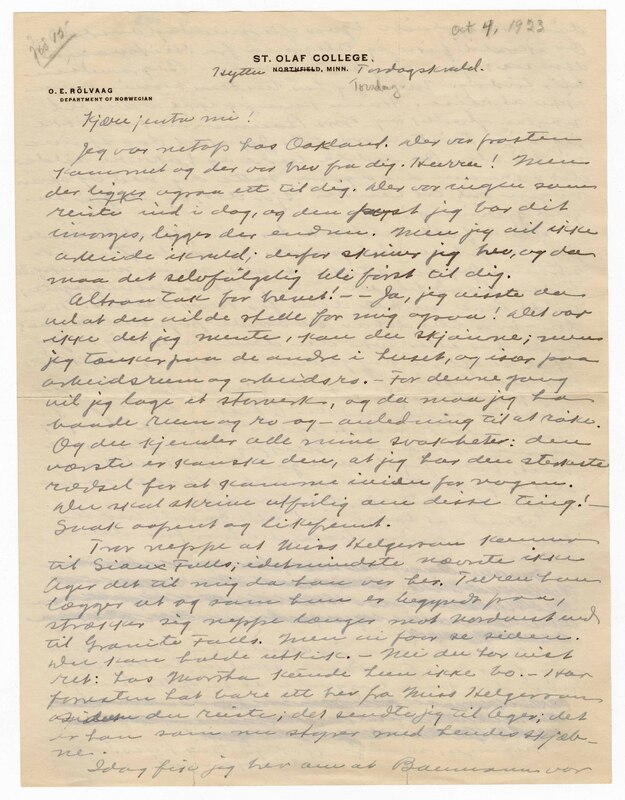 Feb 15.
Oct 4, 1923
ST. OLAF COLLEGE,
Hytten NORTHFIELD, MINN. Torsdagskveld.
Torsdag
O. E. RÖLVAAG
DEPARTMENT OF NORWEGIAN
Kjære jenta mi!
Jeg var netop hos Oakland. Der var posten
kommet og der var brev fra dig. Hurra! Men
der ligger ogsaa ett til dig. Der var ingen som
reiste ind i dag, og den post jeg bar dit
imorges, ligger der endnu. Men jeg vil ikke
arbeide ikveld; derfor skriver jeg brev, og da
maa det selvfølgelig bli først til dig.
Altsaa tak for brevet! – – Ja, jeg visste da
vel at du vilde stelle for mig ogsaa! Det var
ikke det jeg mente, kan du skjønne; men
jeg tænker paa de andre i huset, og især paa
arbeidsrum og arbeidsro. – For denne gang
vil jeg lage et storverk, og da maa jeg ha
baade rum og ro og – anledning til at røke.
Og du kjender alle mine svakheter: den
værste er kanske den, at jeg har den sterkeste
rædsel for at komme iveien for nogen.
Du skal skrive utførlig om disse ting! –
Snak aapent og likefremt.
Tror neppe at Miss Helgeson kommer
til Sioux Falls; idetmindste nævnte ikke
Ager det til mig da han var her. Turen han
lægger ut og som hun er begyndt paa,
strækker sig neppe længer mot nordvest end
til Granite Falls. Men vi faar se siden.
Du kan holde utkik. – Nei du har vist
ret: hos Martha kunde hun ikke bo. – Har
forresten hat bare ett brev fra Miss Helgeson
siden du reiste; det sendte jeg til Ager; det
er han som nu styrer med hendes skjæb-
ne.
Idag fik jeg brev om at Baumann var